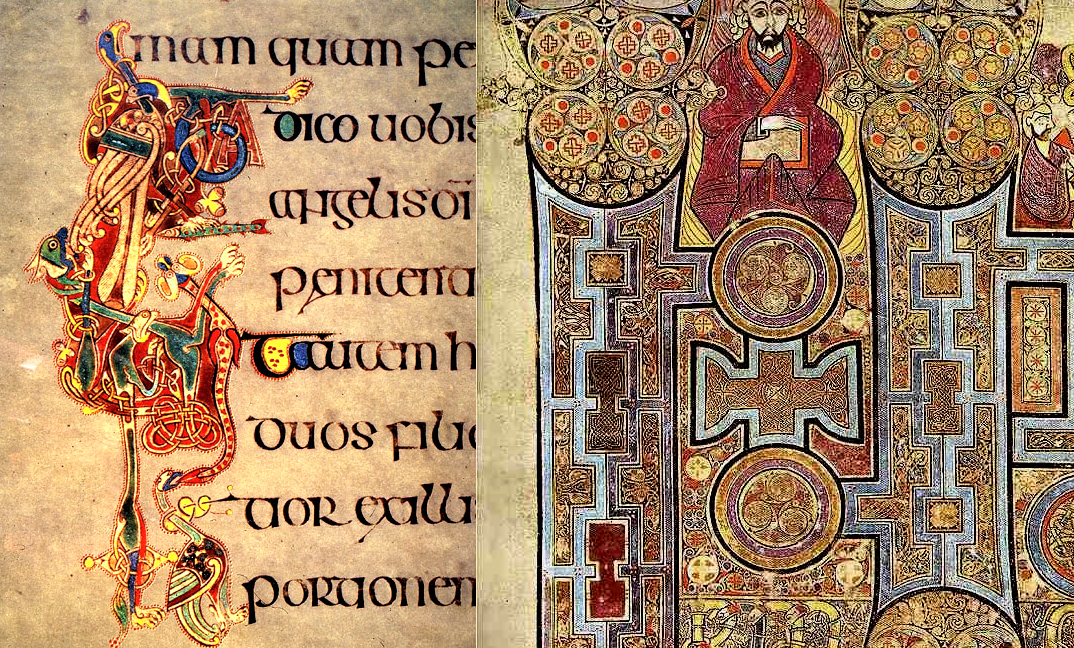 mam quam pe
dico uobis
angelis di
penitentia
autem h
duos filio
tior exilli
portionem